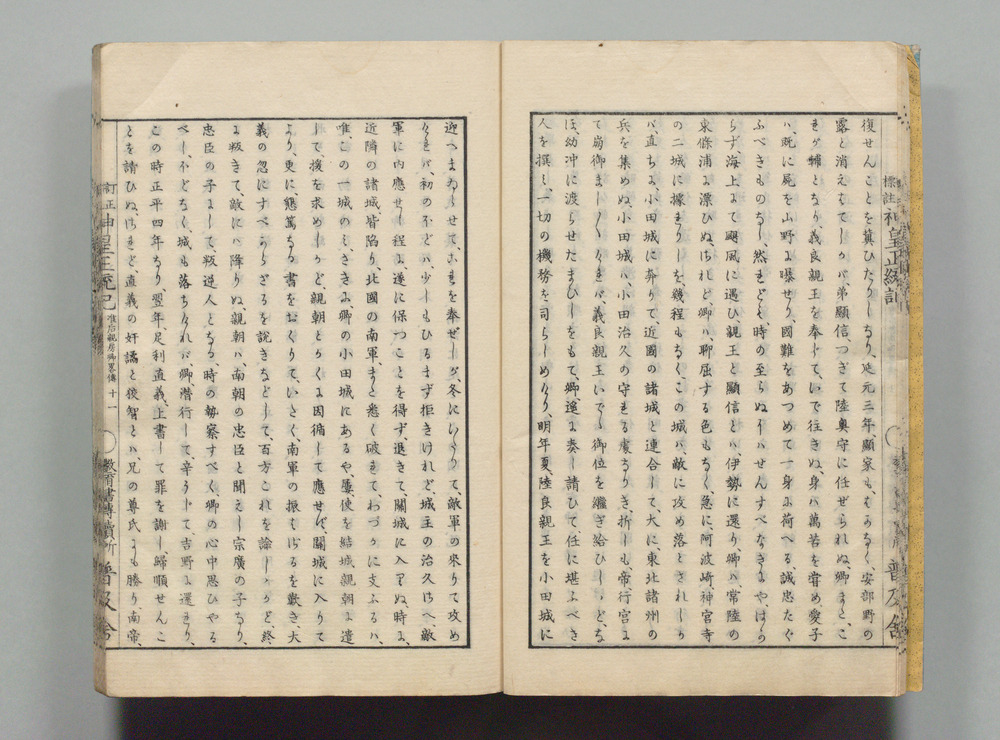 復せんことを冀ひたりしなり、延元三年、顯家もまもなく、安部野の
露と消えはてしかバ、弟顯信、つぎて陸奥守に任せられぬ、卿また、こ
れが輔となり義良親王を奉して、いで往きぬ、身ハ萬苦を嘗め愛子
ハ、既に屍を山野に曝せり、國難をあつめて一身に荷へる誠忠たぐ
ふべきものなし、然れども時の至らぬイハせんすべなきにや、
らず、海上にて颶風に遇ひ親王と顯信とハ、伊勢に還り、卿ハ、常陸の
東條浦に漂ひぬ、されど、卿ハ、聊屈する色もなく、急に、阿波崎、神宮寺
の二城に據れりしを、幾程もなくこの城ハ、敵に攻め落とされしか
バ、直ちに、小田城に奔りて、近國の諸城と連合して、大に、東北諸州の
兵を集めぬ、小田城ハ、小田治久の守れる處なりき、折しも、帝、行宮に
て崩御ましく けれバ、義良親王いで 御位を繼ぎ給ひしかど、な
ほ、幼冲に渡らせたまひしをもて、卿、遙に奏し請ひて、任に堪ふべき
人を撰ミ、一切の機務を司らしめけり、明年夏、陸良親王を小田城に
標註神皇正統記
迎へまゐらせて、これを奉ぜしが、冬にいたりて、敵軍の来りて攻め
けれバ、初のほどハ、少しもひるまず拒きけれど、城主の治久さへ、敵
軍に内應せし程に、遂に保つことを得ず、退きて、關城に入りぬ、時に、
近隣の諸城、皆陥り、北國の南軍、また悉く破れて、わづかに支ふるハ、
唯この一城のミ、さきに、卿の小田城にあるや、屡、使を結城親朝に遣
して、援を求めしかど、親朝とかくに因循して應せず、關城に入りて
より、更に、懇篤なる書をおくりて、いたく、南軍の振もざるを歎き、大
義の忽にすべからざるを説きなどして、百方これを諭しゝかど、終
に叛きて、敵にハ降りぬ、親朝ハ、南朝の忠臣と聞えし宗廣の子なり、
忠臣の子にして、叛逆人となる、時の勢察すべく、卿の心中思ひやる
べし、ほどなく、城も落ちけれバ、卿潜行して、辛うして、吉野に還れり、
この時正平四年なり、翌年、足利直義上書して、罪を謝し歸順せんこ
とを請ひぬ、されど直義の奸譎と狡智とハ、兄の尊氏にも勝り、南帝、
訂正神皇正統記 准后親房卿畧傳 十一 〇 教育書專賣所 普及舍